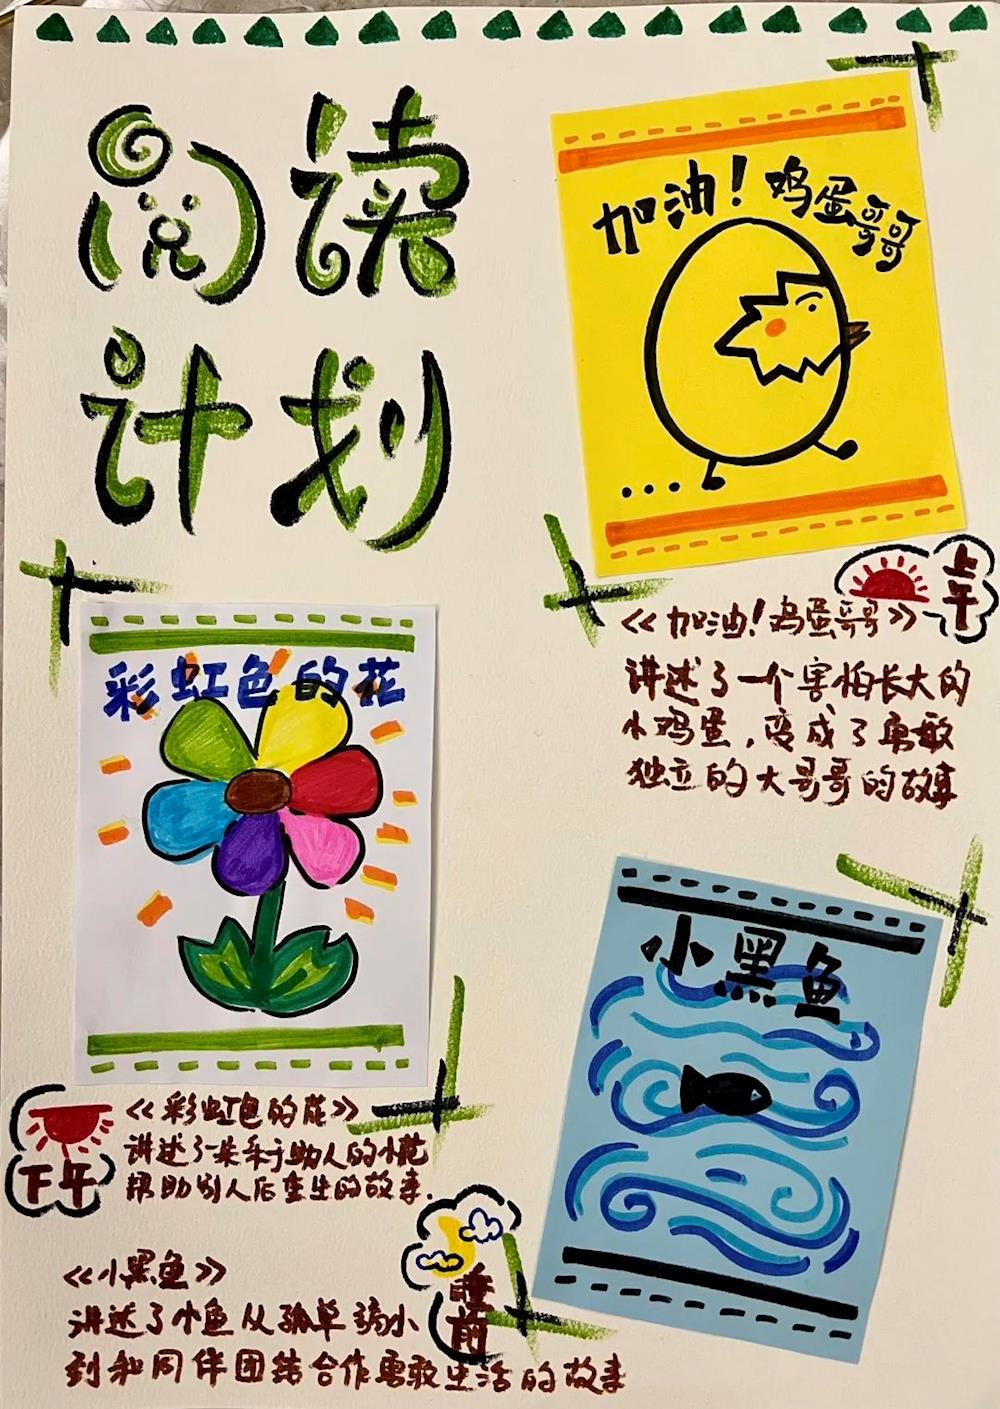 阅读
计划
加油！鸡蛋哥哥
...
上午
《加油！鸡蛋哥哥》
讲述了一个害怕长大的
小鸡蛋，变成了勇敢
独立的大哥哥的故事
彩虹色的花
下午
《彩虹色的花》
讲述了一朵乐于助人的小花
帮助别人后重生的故事.
小黑鱼
睡前
《小黑鱼》
讲述了小鱼从孤单弱小
到和同伴团结合作勇敢生活的故事